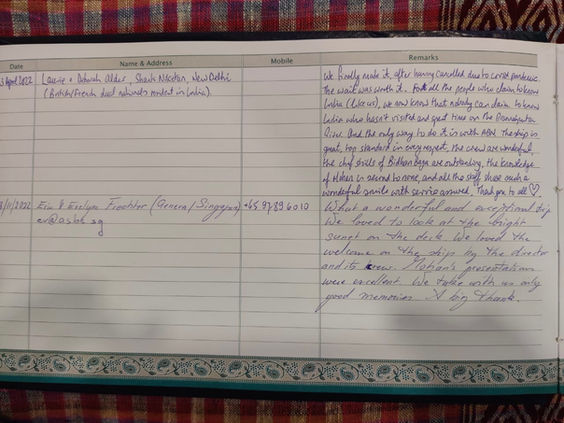 Date
Name & Address
Mobile
Remarks
April 2022
Laurie & Deborah Alder, Shanti Niketan, New Delhi
(British/French dual nationals resident in India).
We finally made it, after having cancelled due to covid pandemic.
The wait was worth it. For all the people who claim to know
India (like us), we now know that nobody can claim to know
India who hasn't visited and spent time on the Brahmaputra
River. And the only way to do it is with ABN. The ship is
great, top standard in every respect, the crew are wonderful,
the chef skills of are outstanding, the knowledge
of Mohan is second to none, and all the staff share such a
wonderful smile with service assured. Thank you to all ♡
/11/2022
Eric & Evelyne (Geneva/Singapore)
+65.9789 6010
What a wonderful and exceptional trip
We loved to look at the bright
sunset on the deck. We loved the
welcome on the ship by the director
and its crew. Mohan's presentation
were excellent. We take with us only
good memories. A big thank.